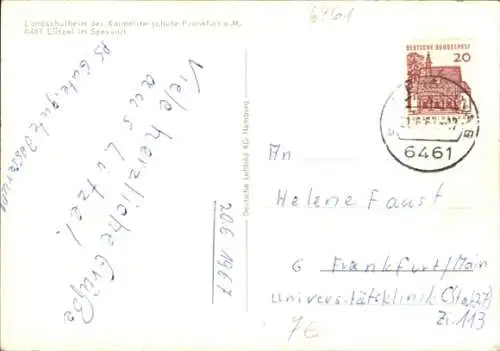 64601
Landschulheim der Karmeliterschule Frankfurt a. M.
6461 Lützel im Spessart
PS Gute gute Besserung
Viele herzliche Grüße
aus Lützel!
20.6.1967
Deutsche Luftbild KG Hamburg
DEUTSCHE BUNDESPOST
20
6461
An
Helene Faust
6 Frankfurt/Main
Universitätsklinik (Stat.27)
Zi. 113
7E